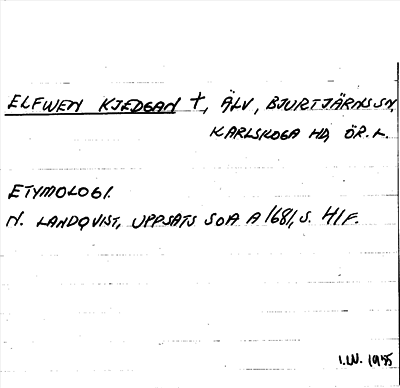 ELFWEN KJEDGAN †, ÄLV, BJURTJÄRNS SN,
KARLSKOGA HD, ÖR. L.
ETYMOLOGI.
N. LANDQVIST, UPPSATS SOA A 1681, S. 41F.
I.W. 1975